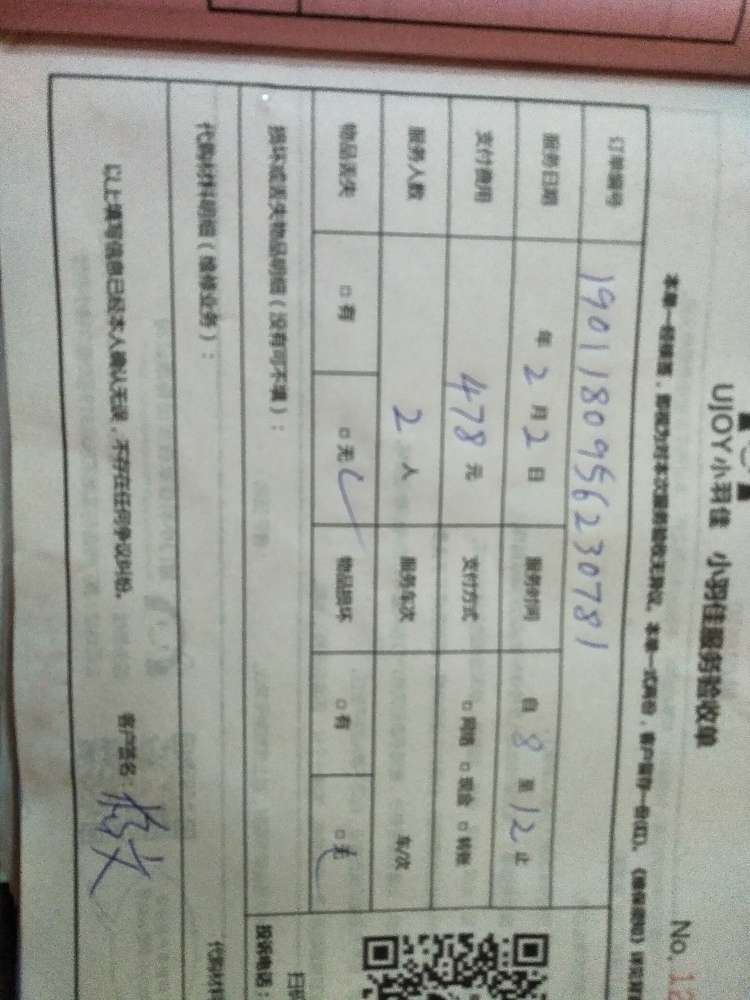 UJOY小羽佳 小羽佳服务验收单
No. 12
本单一经签署，即视为对本次服务验收无异议。本单一式两份，客户留存一份(红)。
订单编号 1901180956230781
服务日期 年2月2日 服务时间 自8至12止
支付费用 478元 支付方式 □网络 □现金 □转账
服务人数 2人 服务车次 车/次
物品丢失 □有 □无✓ 物品损坏 □有 □无✓
损坏或丢失物品明细（没有可不填）：
投诉电话：
代购材料明细（维修业务）：
代购材料
以上填写信息已经本人确认无误，不存在任何争议纠纷。 客户签名：